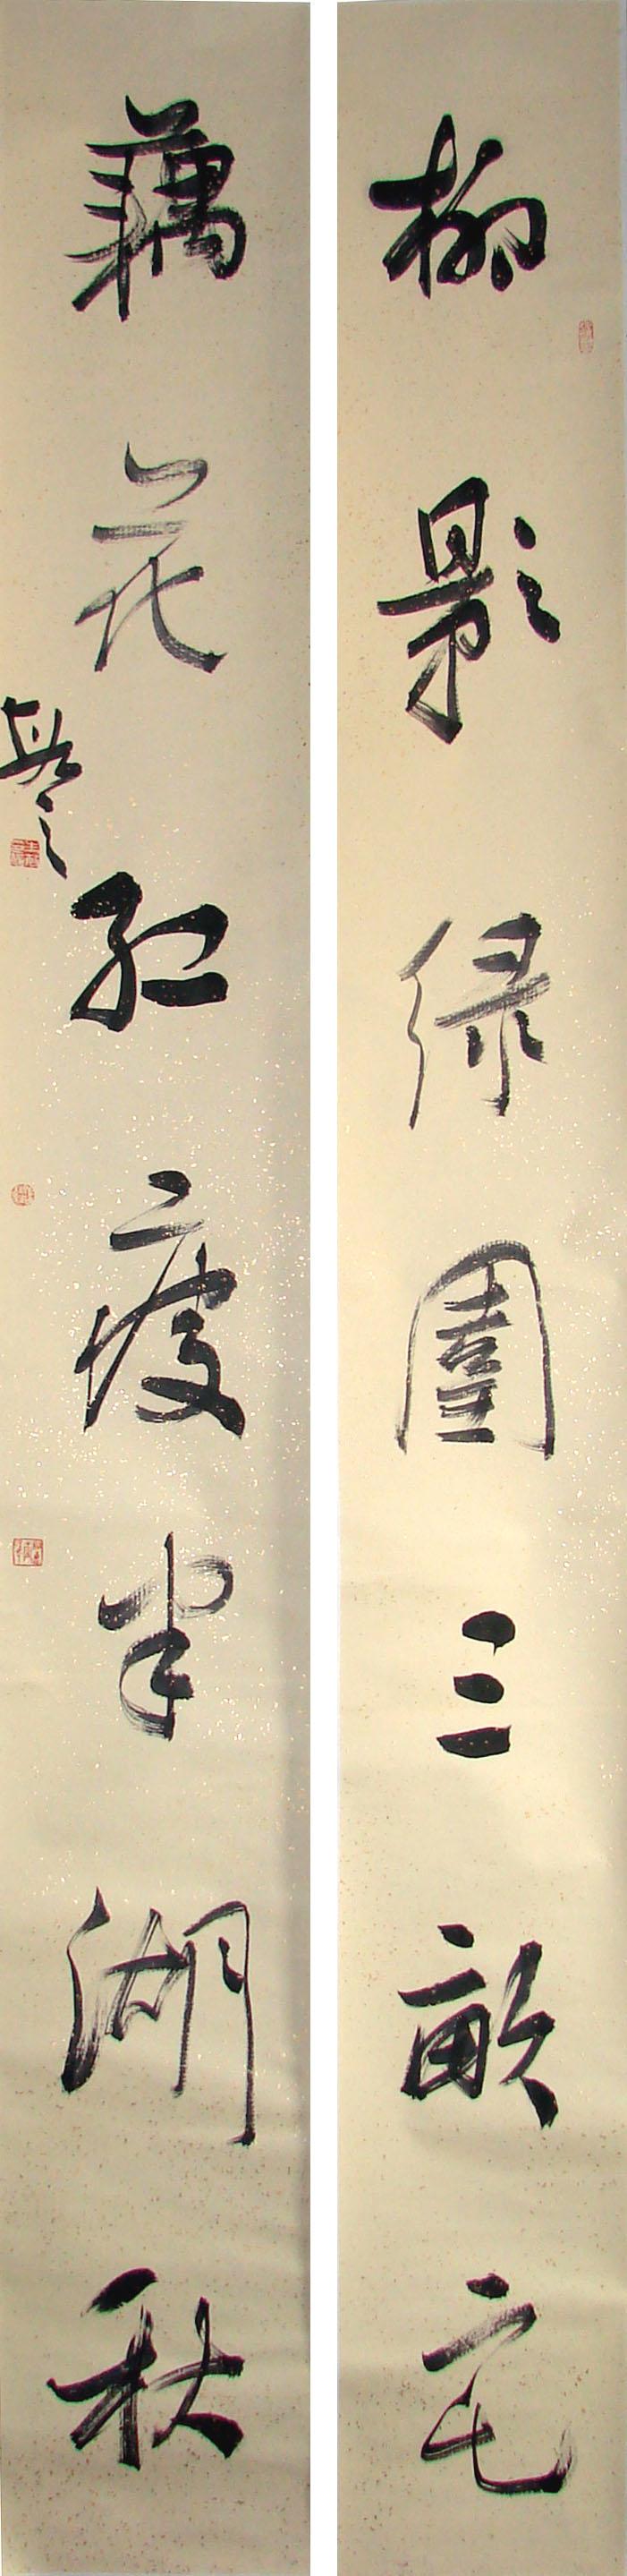 柳影緑圍三畝宅
藕花紅瘦半湖秋